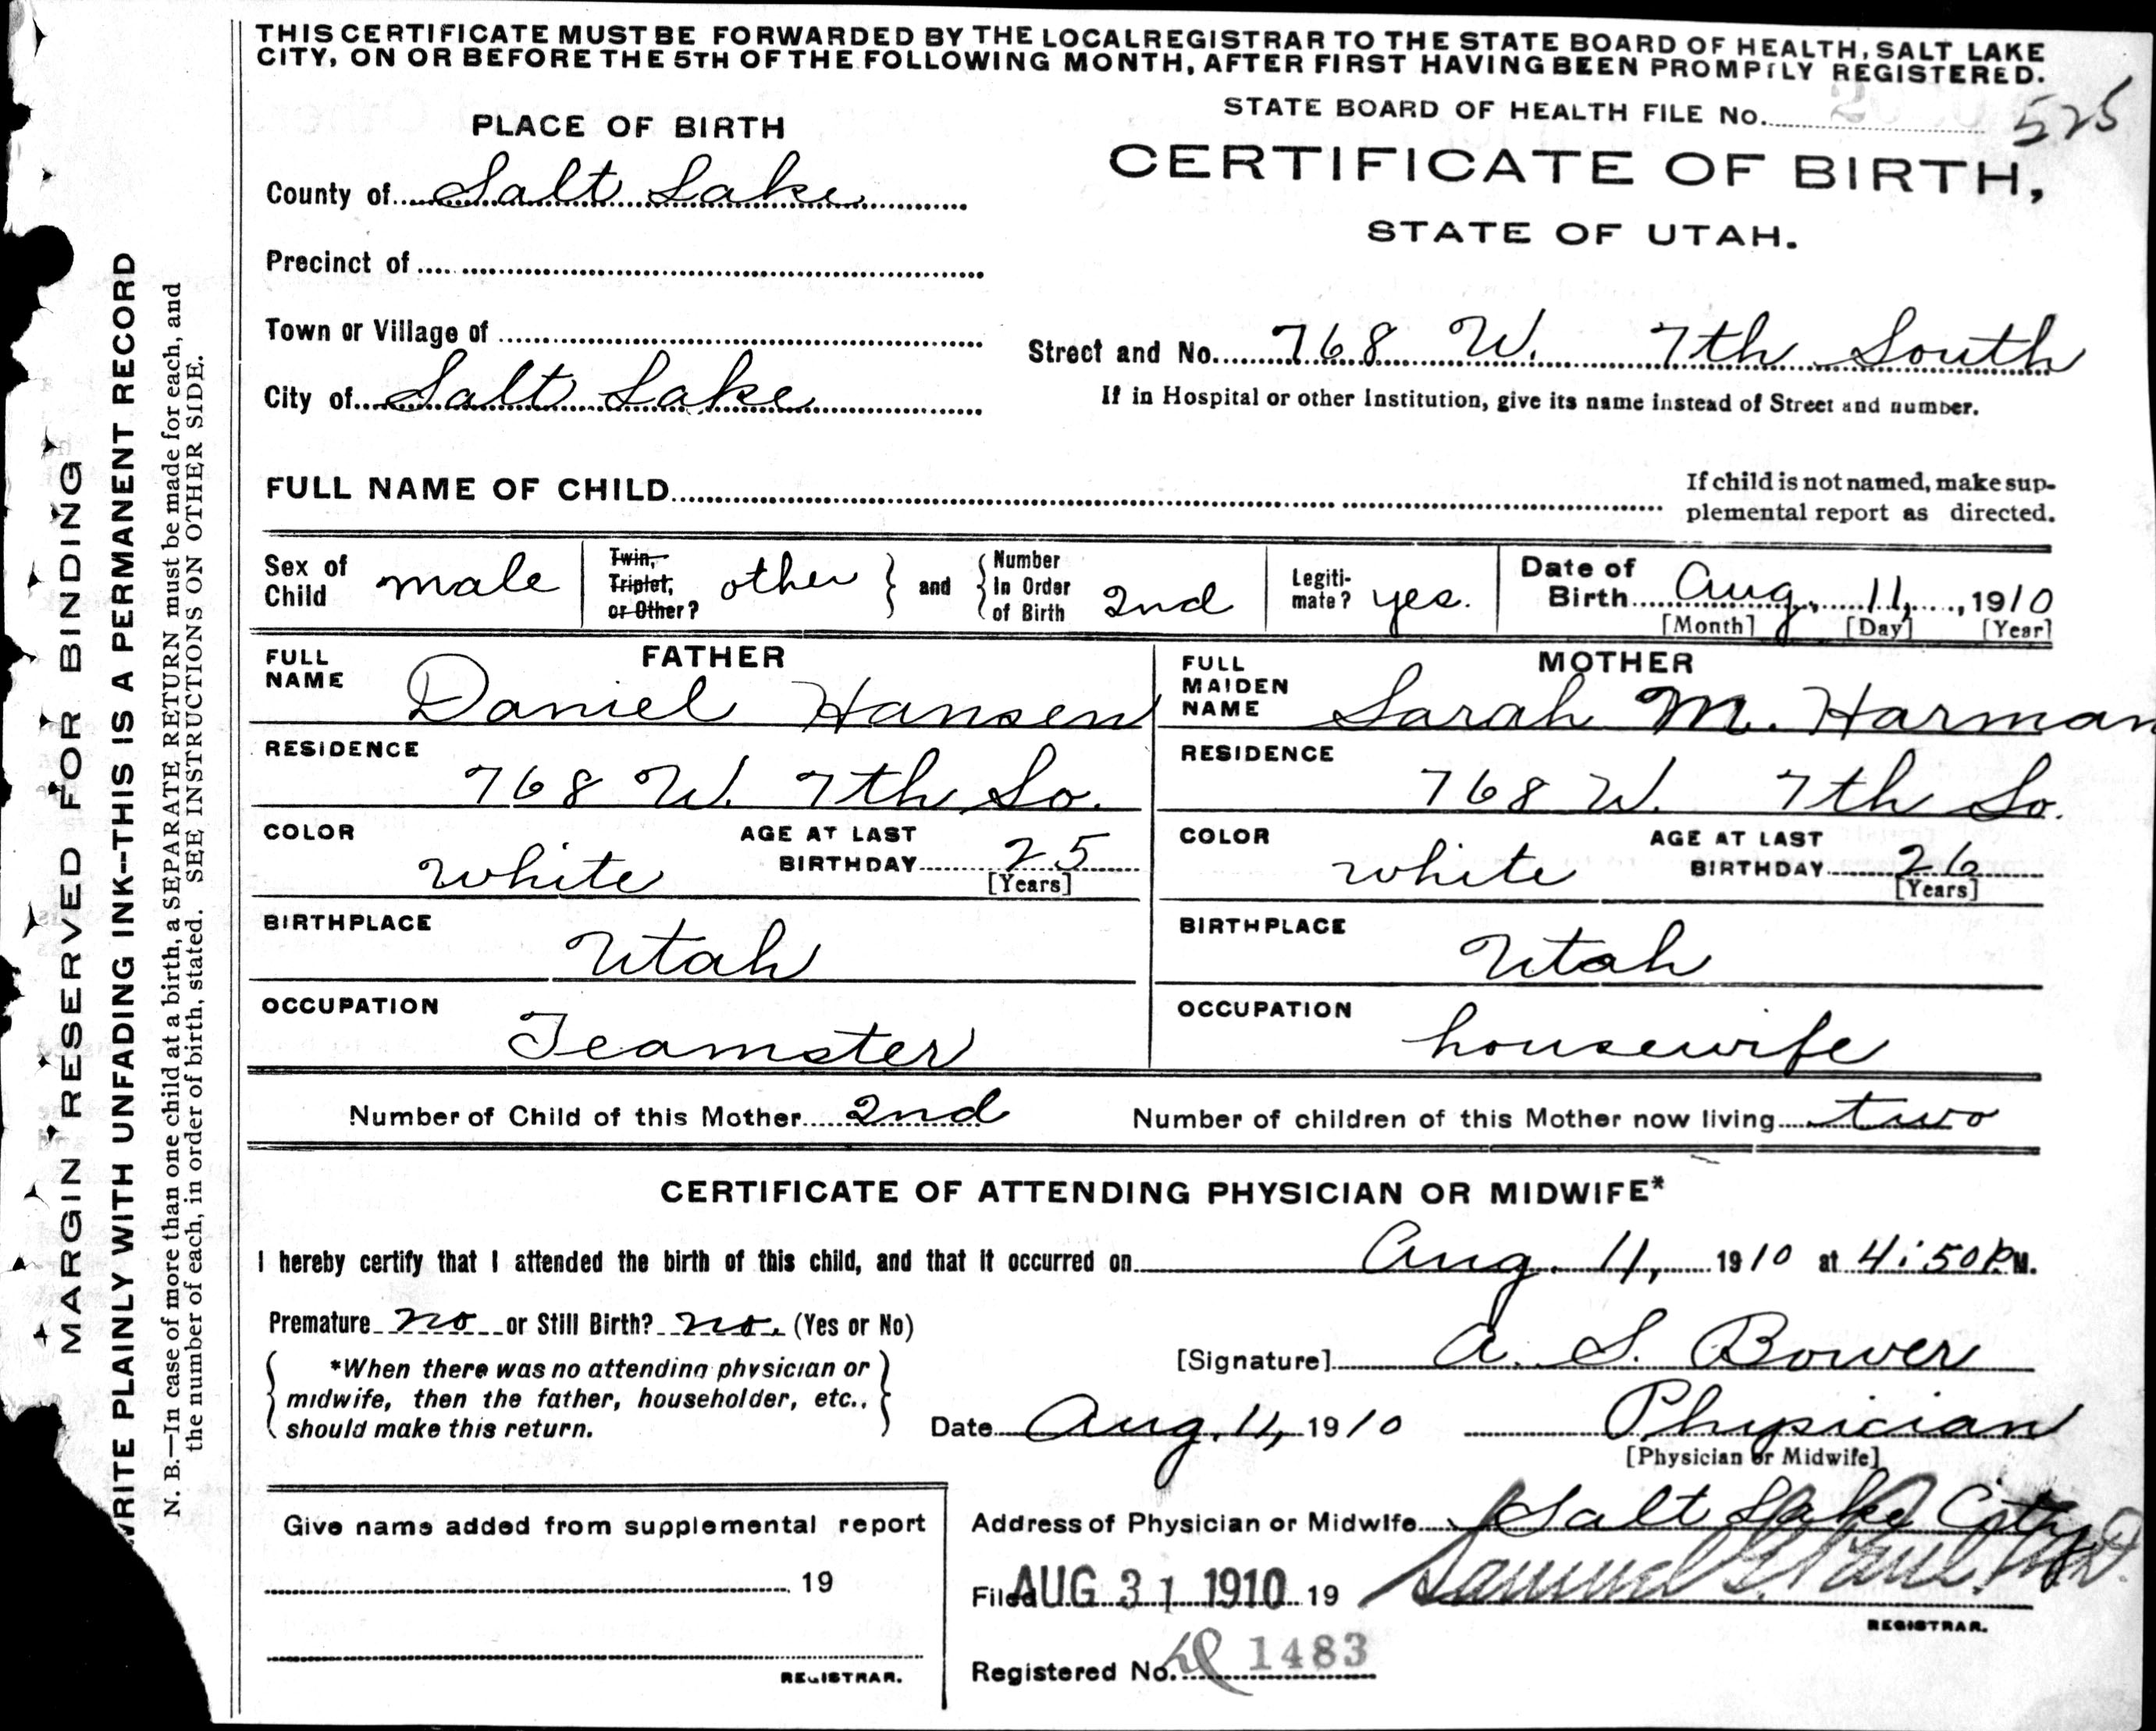 THIS CERTIFICATE MUST BE FORWARDED BY THE LOCAL REGISTRAR TO THE STATE BOARD OF HEALTH, SALT LAKE
CITY, ON OR BEFORE THE 5TH OF THE FOLLOWING MONTH, AFTER FIRST HAVING BEEN PROMPTLY REGISTERED.
STATE BOARD OF HEALTH FILE No. 525
PLACE OF BIRTH
CERTIFICATE OF BIRTH,
STATE OF UTAH.
County of Salt Lake
Precinct of
Town or Village of
Street and No. 768 W. 7th South
City of Salt Lake
If in Hospital or other Institution, give its name instead of Street and number.
FULL NAME OF CHILD
If child is not named, make sup-
plemental report as directed.
Sex of Child male
Twin, Triplet, or Other? other
and Number In Order of Birth 2nd
Legiti-mate? yes.
Date of Birth Aug. 11, 1910
[Month] [Day] [Year]
FATHER
FULL NAME Daniel Hansen
RESIDENCE 768 W. 7th So.
COLOR white AGE AT LAST BIRTHDAY 25 [Years]
BIRTHPLACE Utah
OCCUPATION Teamster
MOTHER
FULL MAIDEN NAME Sarah M. Harman
RESIDENCE 768 W. 7th So.
COLOR white AGE AT LAST BIRTHDAY 26 [Years]
BIRTHPLACE Utah
OCCUPATION housewife
Number of Child of this Mother 2nd Number of children of this Mother now living two
CERTIFICATE OF ATTENDING PHYSICIAN OR MIDWIFE*
I hereby certify that I attended the birth of this child, and that it occurred on Aug. 11, 1910 at 4:50 P.M.
Premature no or Still Birth? no. (Yes or No)
*When there was no attending physician or
midwife, then the father, householder, etc.,
should make this return.
[Signature] A. S. Bower
Date Aug. 11, 1910 Physician
[Physician or Midwife]
Give name added from supplemental report
19
REGISTRAR.
Address of Physician or Midwife Salt Lake City
Filed AUG 31 1910 19 Samuel G. Paul M.D.
REGISTRAR.
Registered No. 1483
MARGIN RESERVED FOR BINDING
WRITE PLAINLY WITH UNFADING INK--THIS IS A PERMANENT RECORD
N. B.—In case of more than one child at a birth, a SEPARATE RETURN must be made for each, and
the number of each, in order of birth, stated. SEE INSTRUCTIONS ON OTHER SIDE.